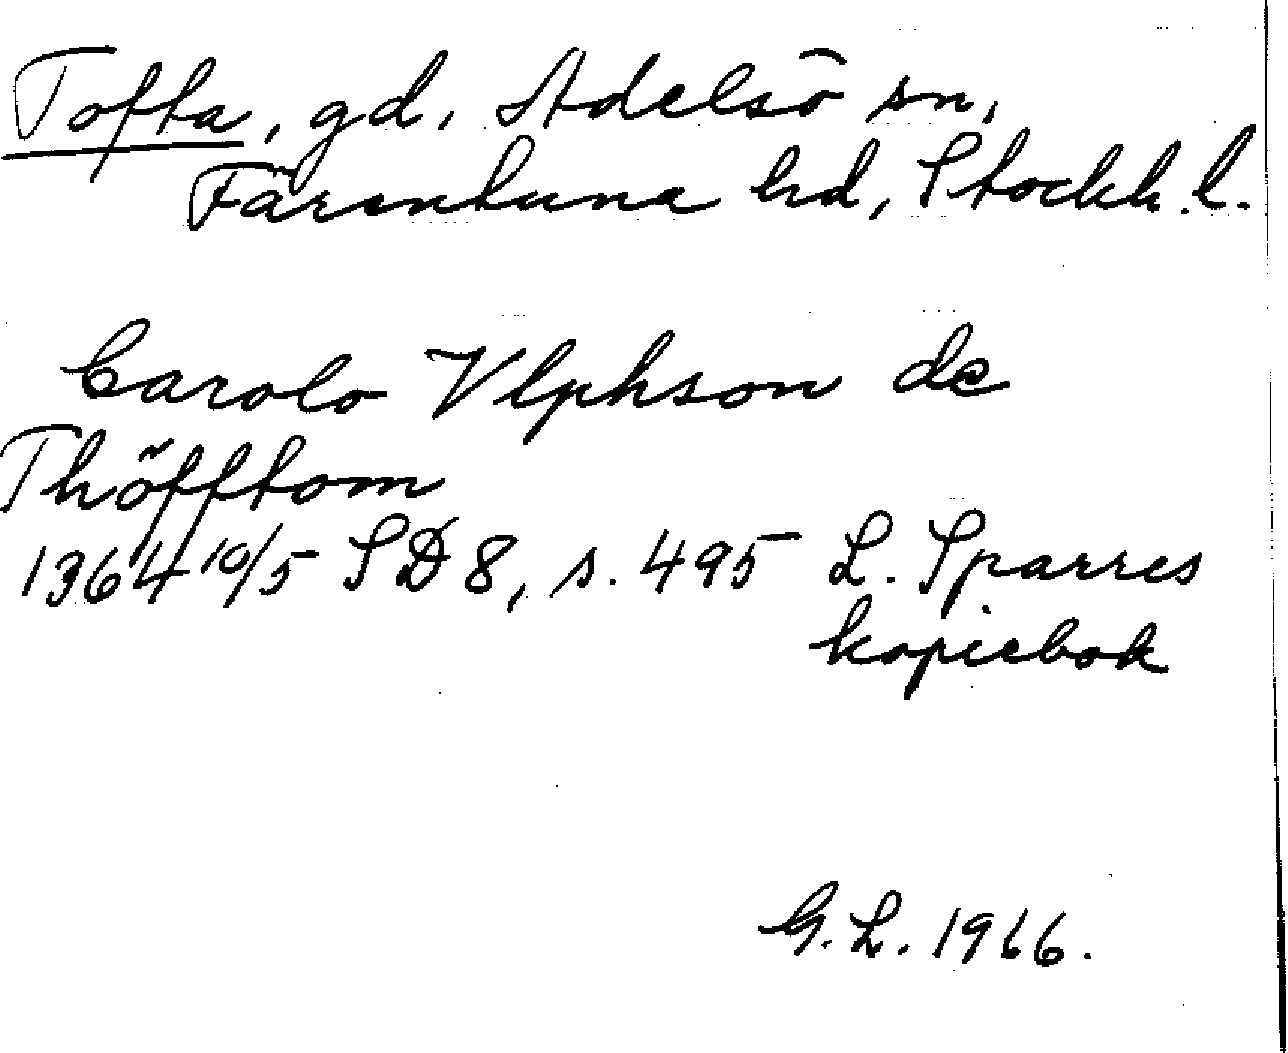 Tofta, gd, Adelsö sn,
Färentuna hd, Stockh. l.
Carolo Vlphson de
Thöfftom
1364 10/5 SD 8, s. 495 L. Sparres
kopiebok
G. L. 1966.